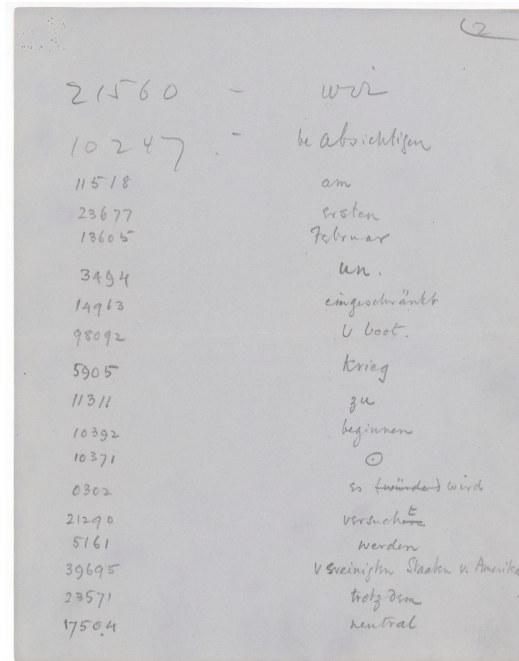 2
21560 - wir
10247 .- beabsichtigen
11518 am
23677 ersten
13605 Februar
3494 un.
14963 eingeschränkt
98092 U boot.
5905 Krieg
11311 zu
10392 beginnen
10371 ⊙
0302 es (würde) wird
21290 versucht
5161 werden
39695 Vereinigten Staaten v. Amerika
23571 trotzdem
17504 neutral